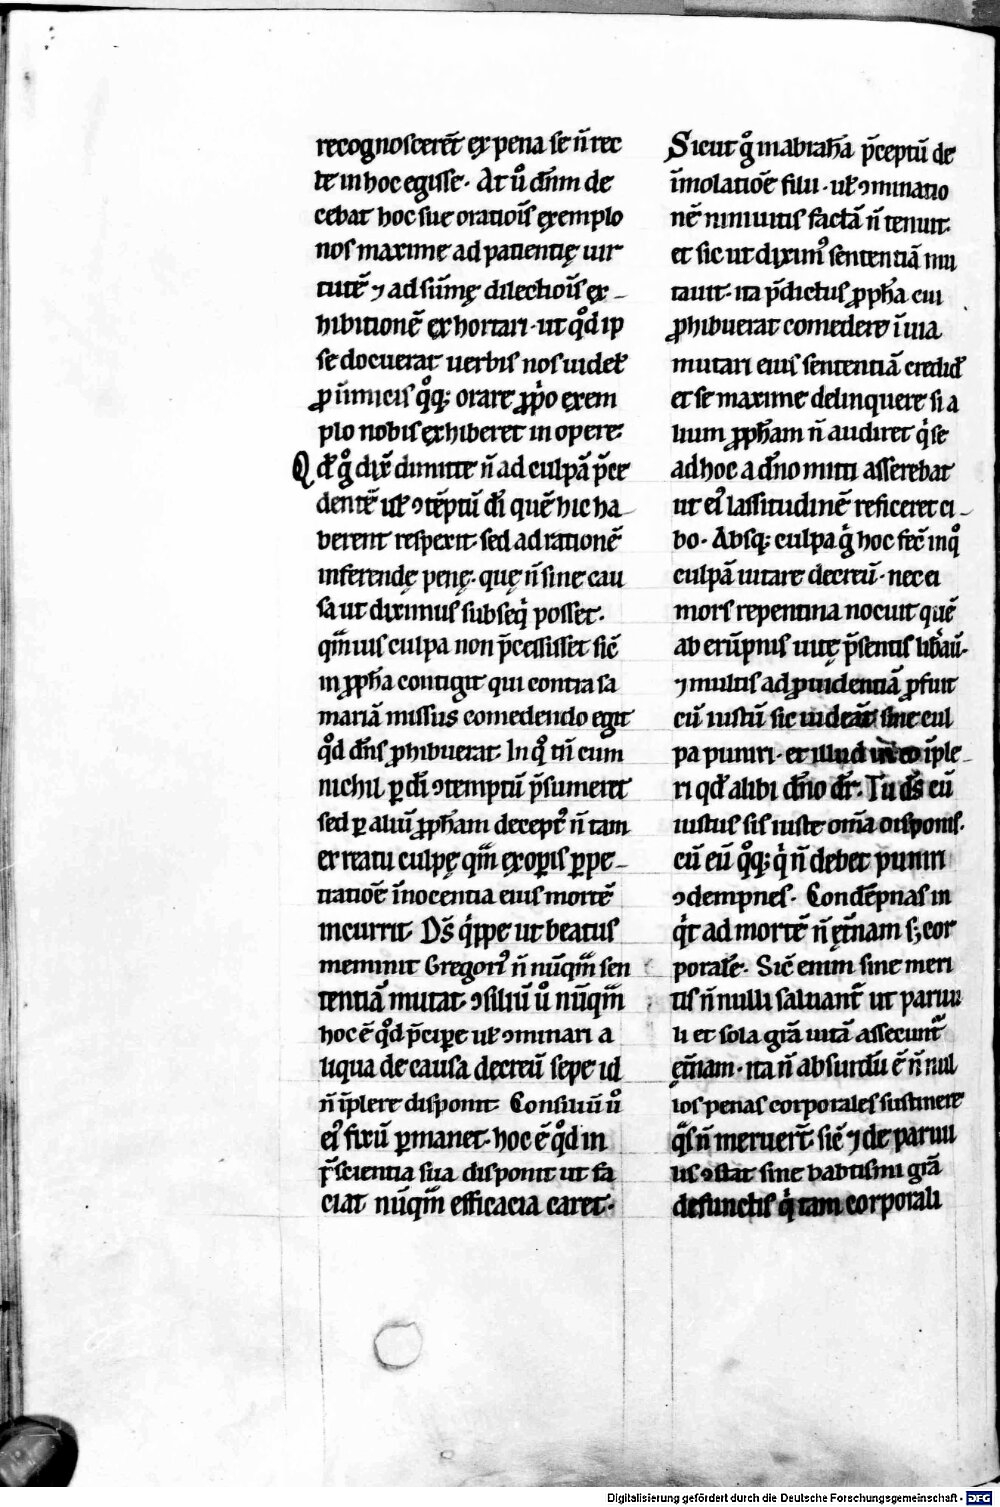 recognoscerēt ex pena se n̄ rec
te in hoc egisse. At ů dn̄m de
cebat hoc sue oratiōis exemplo
nos maxime ad patientię uir
tutē ⁊ ad sūmę dilectiōis ex-
hibitionē exhortari. ut qd̊ ip
se docuerat uerbis nos uidel̄
p̱ inimicis q̊q; orare p̱p̱o exem
plo nobis exhiberet in opere.
Qd̄ g̊ dix̄ dimitte n̄ ad culpā p̄ce
dentē ul̄ ꝯtēptū dī quē hic ha-
berent respexit. sed ad rationē
inferendę penę. quę n̄ sine cau
sa ut diximus subseq̇ posset.
qm̄uis culpa non p̄cessisset sic̄
in p̱ph̄a contigit qui contra sa
mariā missus comedendo egit
qd̊ dn̄s p̱hibuerat. In q̊ tn̄ cum
nichil ꝑ dī ꝯtemptū p̄sumeret
sed ꝑ aliū p̱ph̄am decept᾽ n̄ tam
ex reatu culpę qm̄ ex opis ꝑpe-
tratiōe īnocentia eius mortē
incurrit. Ds̄ q̇ppe ut beatus
meminit Gregori᾽ n̄ nūqm̄ sen
tentiā mutat ꝯsiliū ů nūqm̄
hoc ē qd̊ p̄cipe ul̄ ꝯminari a
liqua de causa decreū sepe id
n̄ īplere disponit. Consiliū ů
ei᾽ fixū ꝑmanet. hoc ē qd̊ in
p̄scientia sua disponit ut fa
ciat nūqm̄ efficacia caret.
Sicut g̊ in abrah̄a p̄ceptū de
īmolatiōe filii. ul̄ ꝯminatio
nē niniuitis factā n̄ tenuit.
et sic ut dixim᾽ sententiā mu
tauit. ita p̄dictus p̱ph̄a cui
p̱hibuerat comedere ī uia
mutari eius sententiā credid̄
et se maxime delinquere si a
lium p̱ph̄am n̄ audiret q̇ se
ad hoc a dn̄o mitti asserebat
ut ei᾽ lassitudinē reficeret ci-
bo. Absq; culpa g̊ hoc fec̄ in q̊
culpā uitare decreū. nec ei
mors repentina nocuit quē
ab erūpnis uitę p̄sentis lib̄auī.
⁊ multis ad p̱uidentiā p̱fuit
cū iustū sic uideāt sine cul
pa puniri. et illud in eo īple-
ri qd̄ alibi dn̄o dr̄. Tu ds̄ cū
iustus sis iuste om̄a disponis.
cū eū q̊q; q̇ n̄ debet puniri
ꝯdempnes. Condēpnas in
q̇t ad mortē n̄ et̄nam s; cor
porale. Sic̄ enim sine meri
tis n̄nulli saluant᾽ ut paruu
li et sola grā uitā assecunt᾽
et̄nam. ita n̄ absurdū ē n̄nul
los penas corporales sustinere
qs̄ n̄ meruert̄ sic̄ ⁊ de paruu
lis ꝯstat sine babtismi grā
defunctis q̇ tam corporali